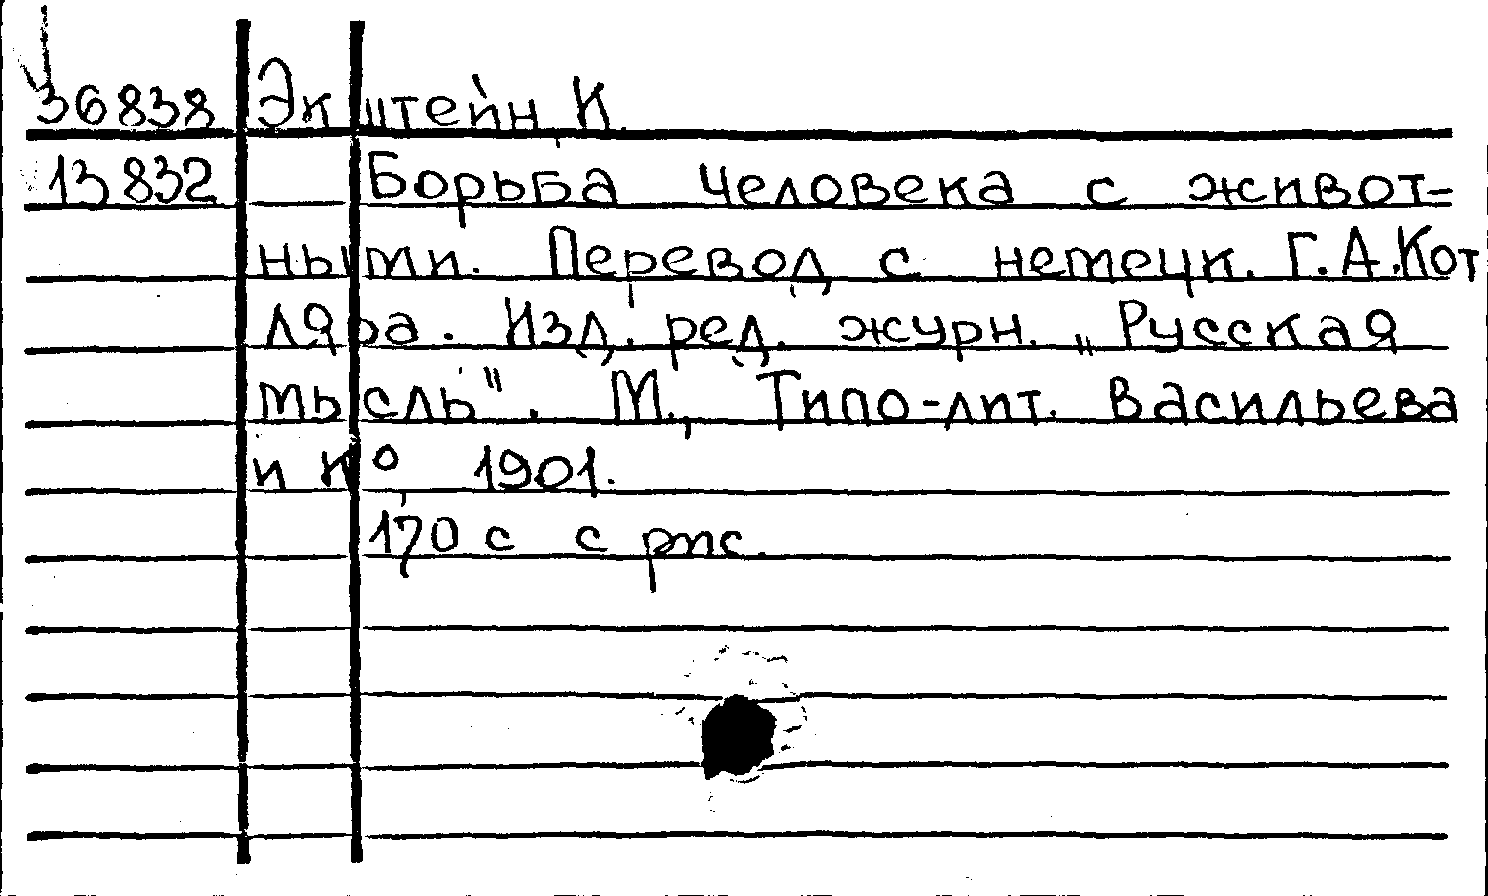 36838 Экштейн, К.
13832 Борьба человека с живот-
ными. Перевод с немецк. Г.А.Кот
ляра. Изд. ред. журн. „Русская
мысль". М., Типо-лит. Васильева
и К°, 1901.
170 с с рис.